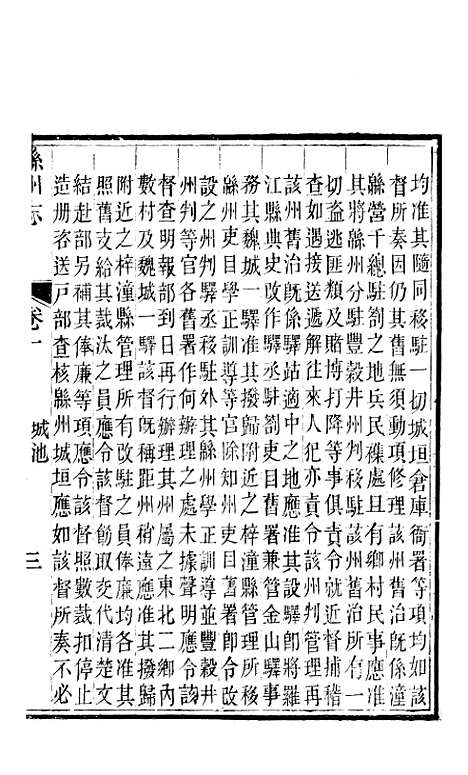 均准其隨同移駐一切城垣倉庫衙署等項均如該
督所奏因仍其舊無須動項修理該州舊治旣係潼
緜營千總駐劄之地兵民襍處且有鄉村民事應准
其將緜州分駐豐穀井州判移駐該州舊治所有一
切盜逃匪類及賭博打降等事俱責令就近督捕稽
查如遇接送遞解往來人犯亦責令該州判管理再
該州舊治旣係驛站適中之地應准其設驛卽將羅
江縣典史改作驛丞駐劄吏目舊署兼管金山驛事
務其魏城一驛准其撥歸附近之梓潼縣管理所有
緜州吏目學正訓導等官除知州吏目舊署卽令改
設之州判驛丞移駐外其緜州學正訓導並豐穀井
州判等官各舊署作何辦理之處未據聲明應令該
督查明報部到日再行辦理其州屬之東北二鄉內
數村及魏城一驛該督旣稱距州稍遠應准其撥歸
附近之梓潼縣管理所有改駐之員俸廉均各准其
照舊支給其裁汰之員應令該督飭取交代清楚文
結赴部另補其俸廉等項應令該督照數裁扣停止
造册咨送戸部查核緜州城垣應如該督所奏不必
緜州志
卷一
城池
三